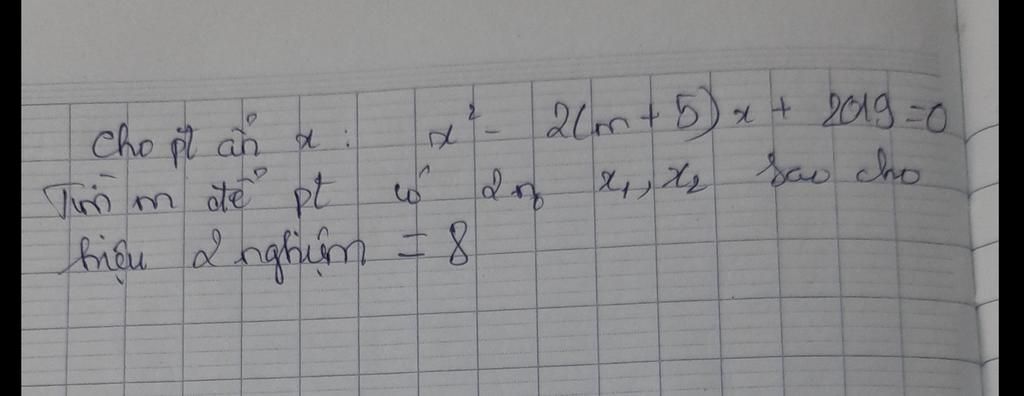 Cho pt ẩn x : x² - 2(m + 5)x + 2019 = 0
Tìm m để pt có 2n x₁, x₂ sao cho
hiệu 2 nghiệm = 8